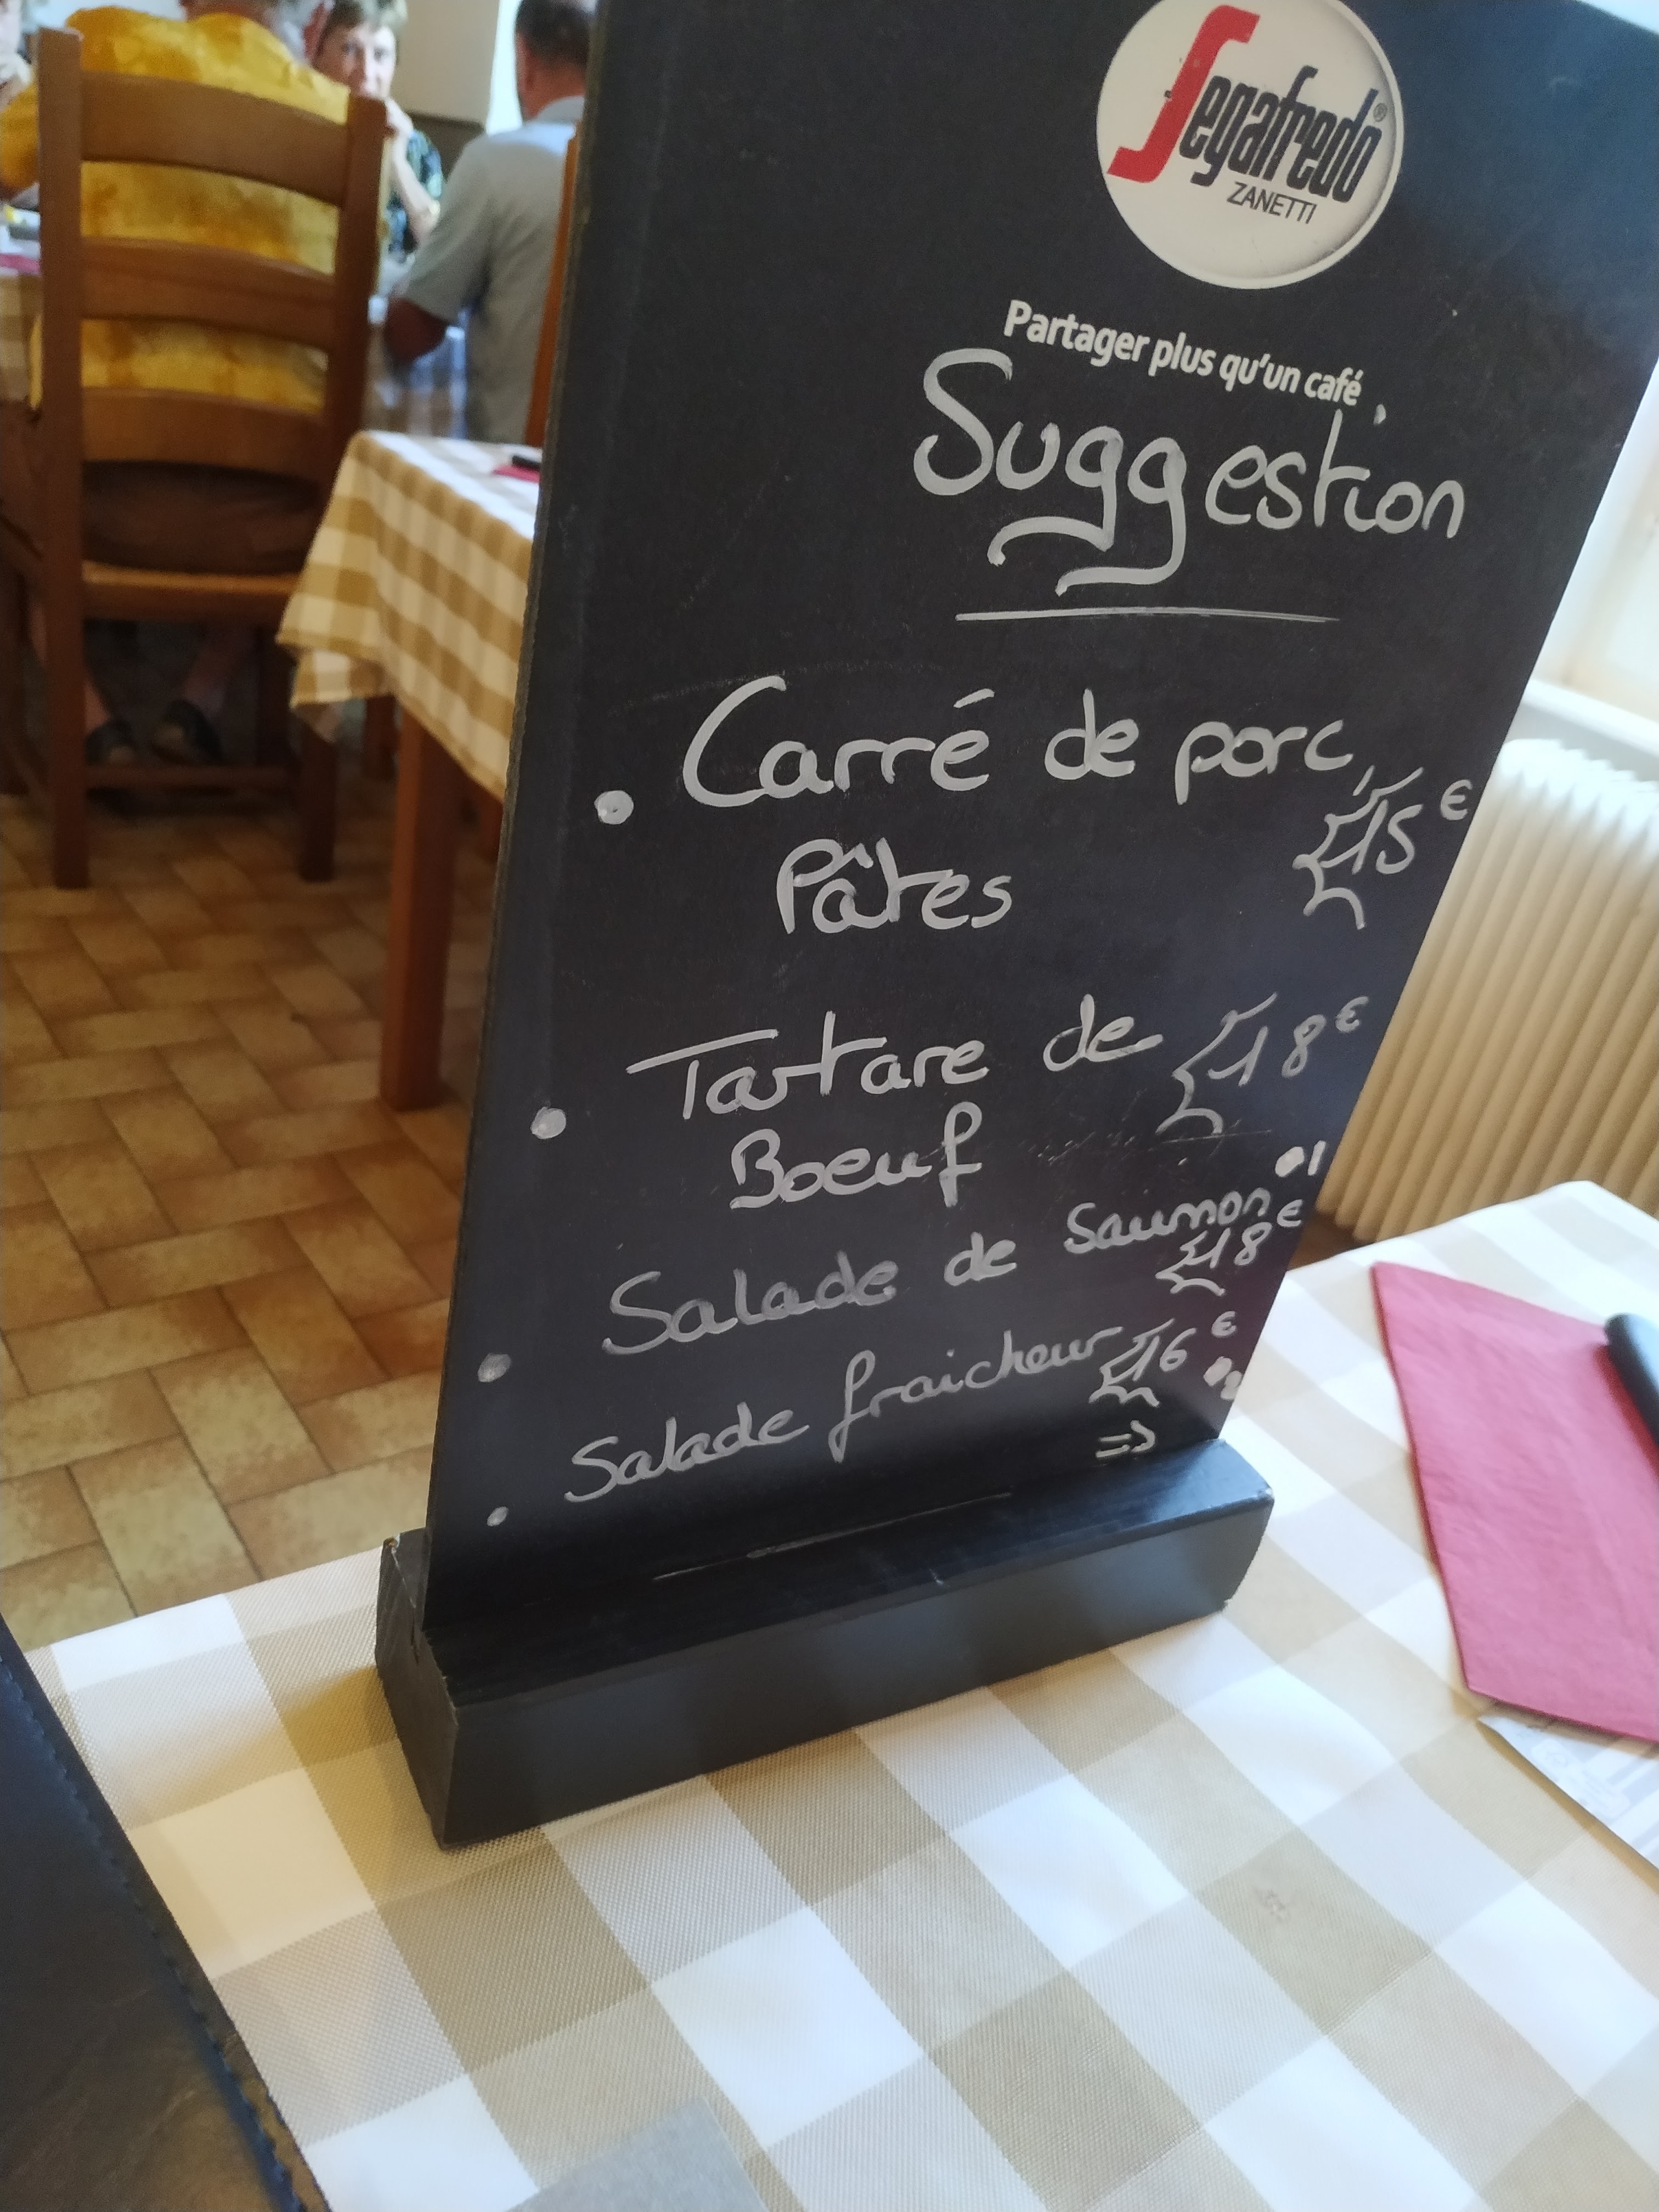 Segafredo®
ZANETTI
Partager plus qu'un café
Suggestion
Carré de porc,
Pâtes 15€
Tartare de 18€
Boeuf
•1
Salade de Saumon
18€
Salade fraicheur 16€
•2
=>